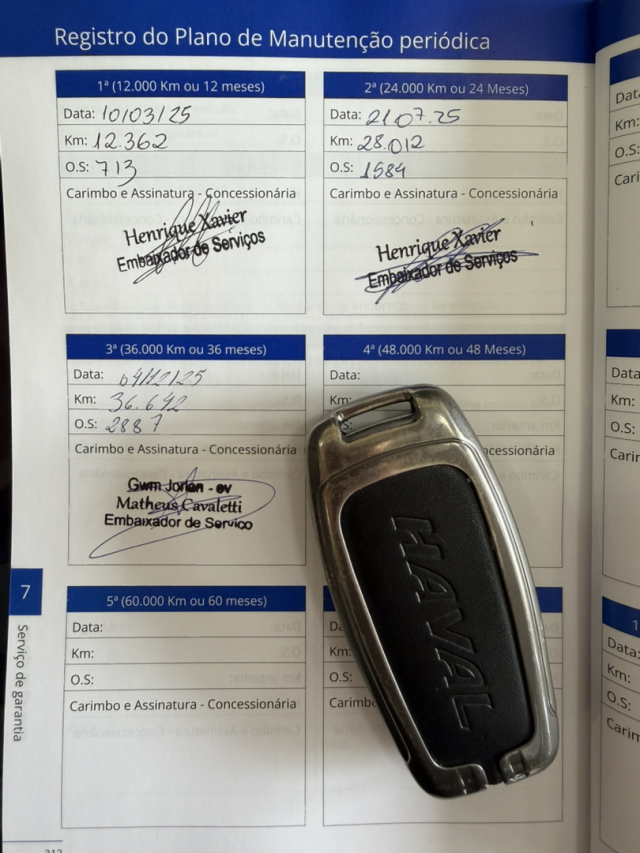 Registro do Plano de Manutenção periódica
1ª (12.000 Km ou 12 meses)
Data: 10/03/25
Km: 12.362
O.S: 713
Carimbo e Assinatura - Concessionária
Henrique Xavier
Embaixador de Serviços
2ª (24.000 Km ou 24 Meses)
Data: 21.07.25
Km: 28.012
O.S: 1584
Carimbo e Assinatura - Concessionária
Henrique Xavier
Embaixador de Serviços
3ª (36.000 Km ou 36 meses)
Data: 04/12/25
Km: 36.642
O.S: 2887
Carimbo e Assinatura - Concessionária
Gwm Jorlan - ev
Matheus Cavaletti
Embaixador de Servico
4ª (48.000 Km ou 48 Meses)
Data:
Km:
S:
nária
5ª (60.000 Km ou 60 meses)
Data:
Km:
O.S:
Carimbo e Assinatura - Concessionária
Data:
Km:
O.S:
Carimb
HAVAL
Data
Km:
O.S:
Cari
Data
Km:
O.S:
Carir
1
Data:
Km:
O.S:
Carim
7
Serviço de garantia